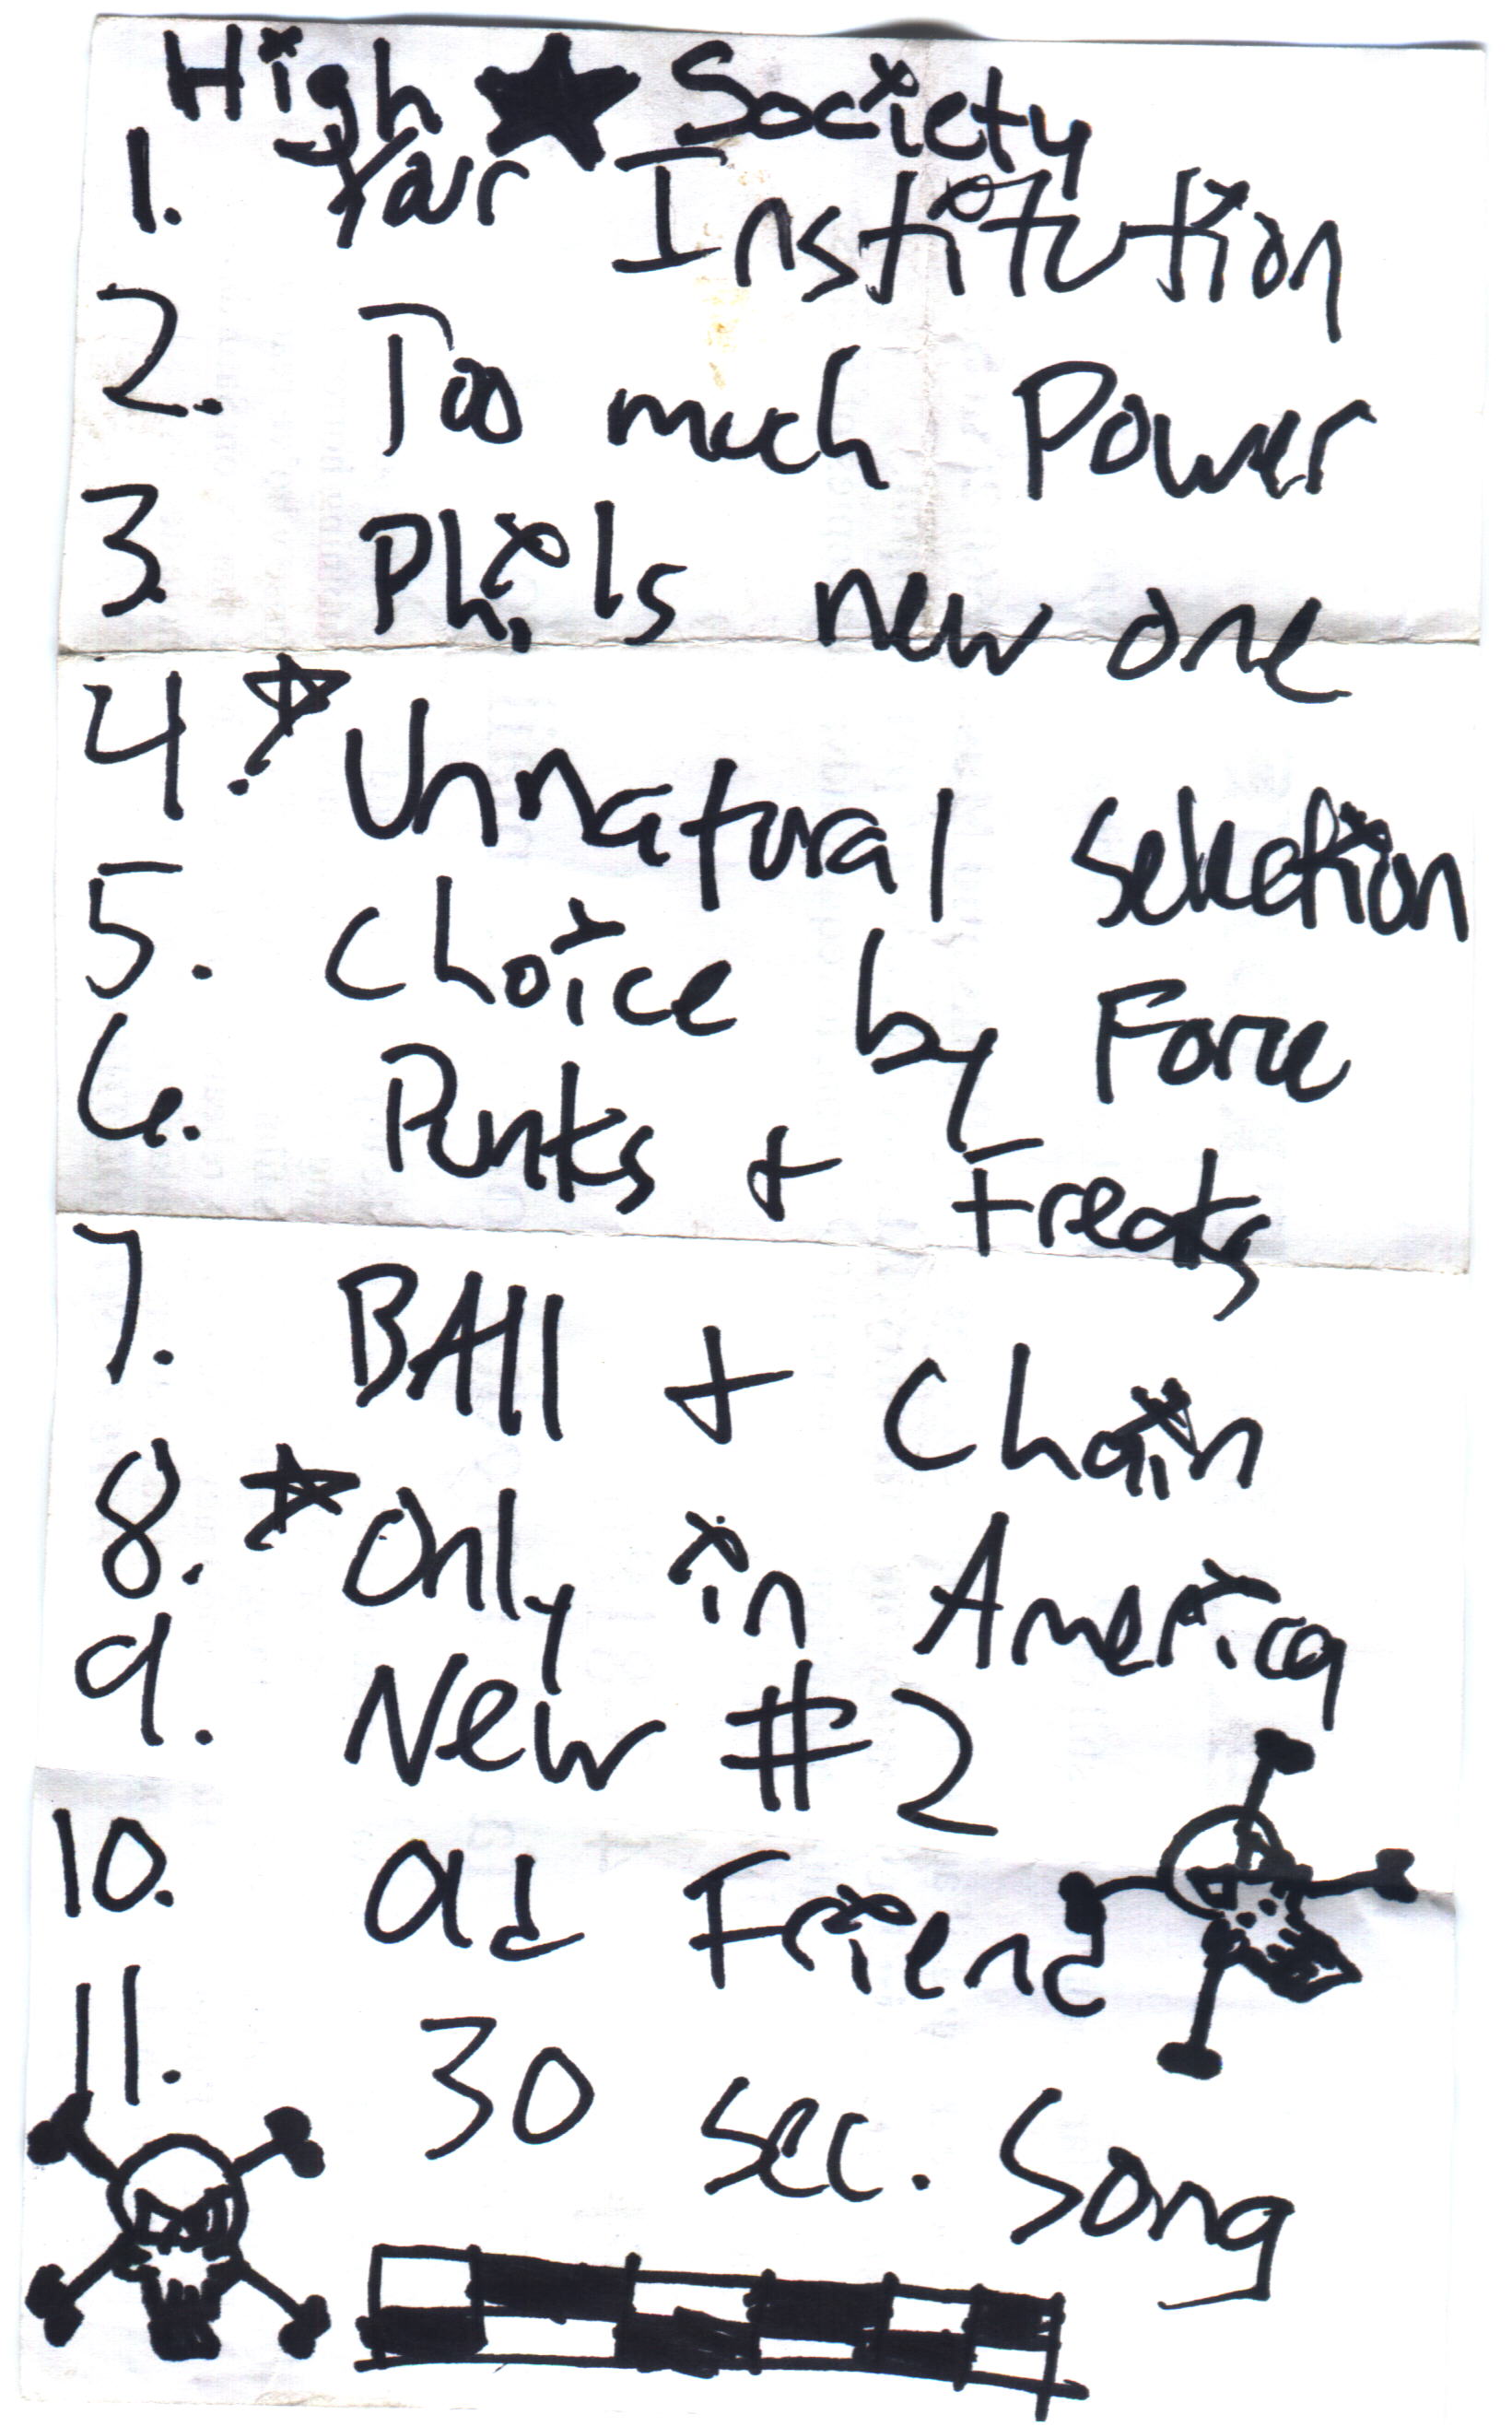 High ★ Society
1. Your Institution
2. Too much Power
3. Phils new one
4. ☆ Unnatural Selection
5. Choice by Force
6. Punks + Freaks
7. BAll + Chain
8. ☆ Only in America
9. New #2
10. Old Friend
11. 30 sec. Song